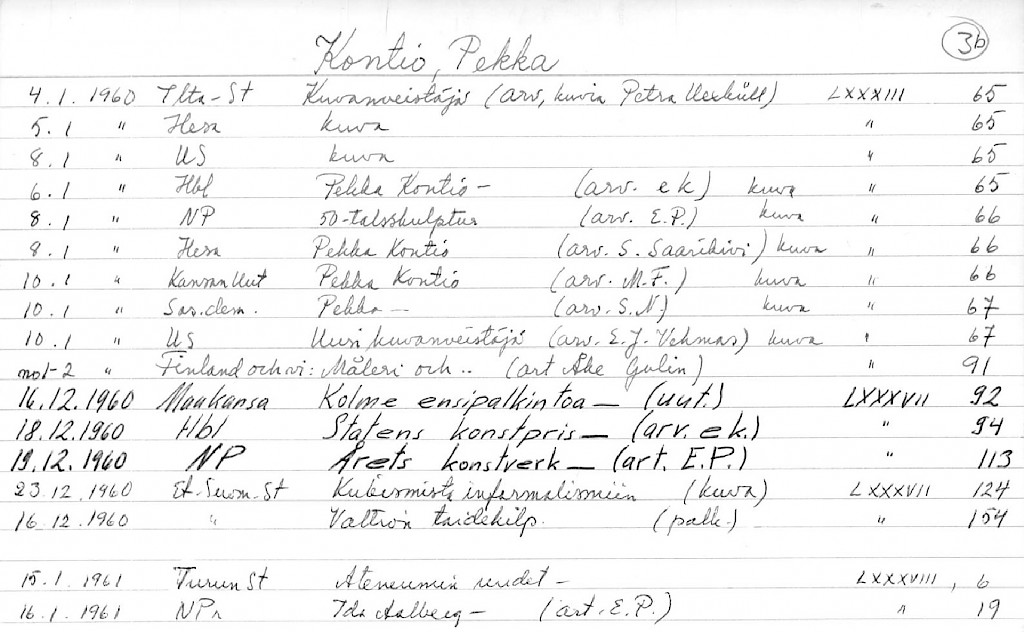 Kontio, Pekka 3b
4.1. 1960 Ilta-St Kuvanveistäjä (arv, kuvia Petra Uexküll) LXXXIII 65
5.1 " Hesa kuva " 65
8.1 " US kuva " 65
6.1 " Hbl Pekka Kontio - (arv. ek) kuva " 65
8.1 " NP 50-talsskulptur (arv. E.P.) kuva " 66
8.1 " Hesa Pekka Kontio (arv. S. Saarikivi) kuva " 66
10.1 " Kansan Uut Pekka Kontio (arv. M.F.) kuva " 66
10.1 " Sos.dem. Pekka - (arv. S.N) kuva " 67
10.1 " US Uusi kuvanveistäjä (arv. E.J. Vehmas) kuva " 67
no 1-2 " Finland och vi: Måleri och .. (art Åke Gulin) " 91
16.12.1960 Maakansa Kolme ensipalkintoa - (uut.) LXXXVII 92
18.12.1960 Hbl Statens konstpris - (arv. ek.) " 94
19.12.1960 NP Årets konstverk - (art. E.P.) " 113
23.12.1960 Et-Suom-St Kubismista informalismiin (kuva) LXXXVII 124
16.12.1960 " Valtion taidekilp. (palk.) " 154
15.1.1961 Turun St Ateneumin uudet - LXXXVIII, 6
16.1.1961 NPr Ida Aalberg - (art. E.P.) " 19